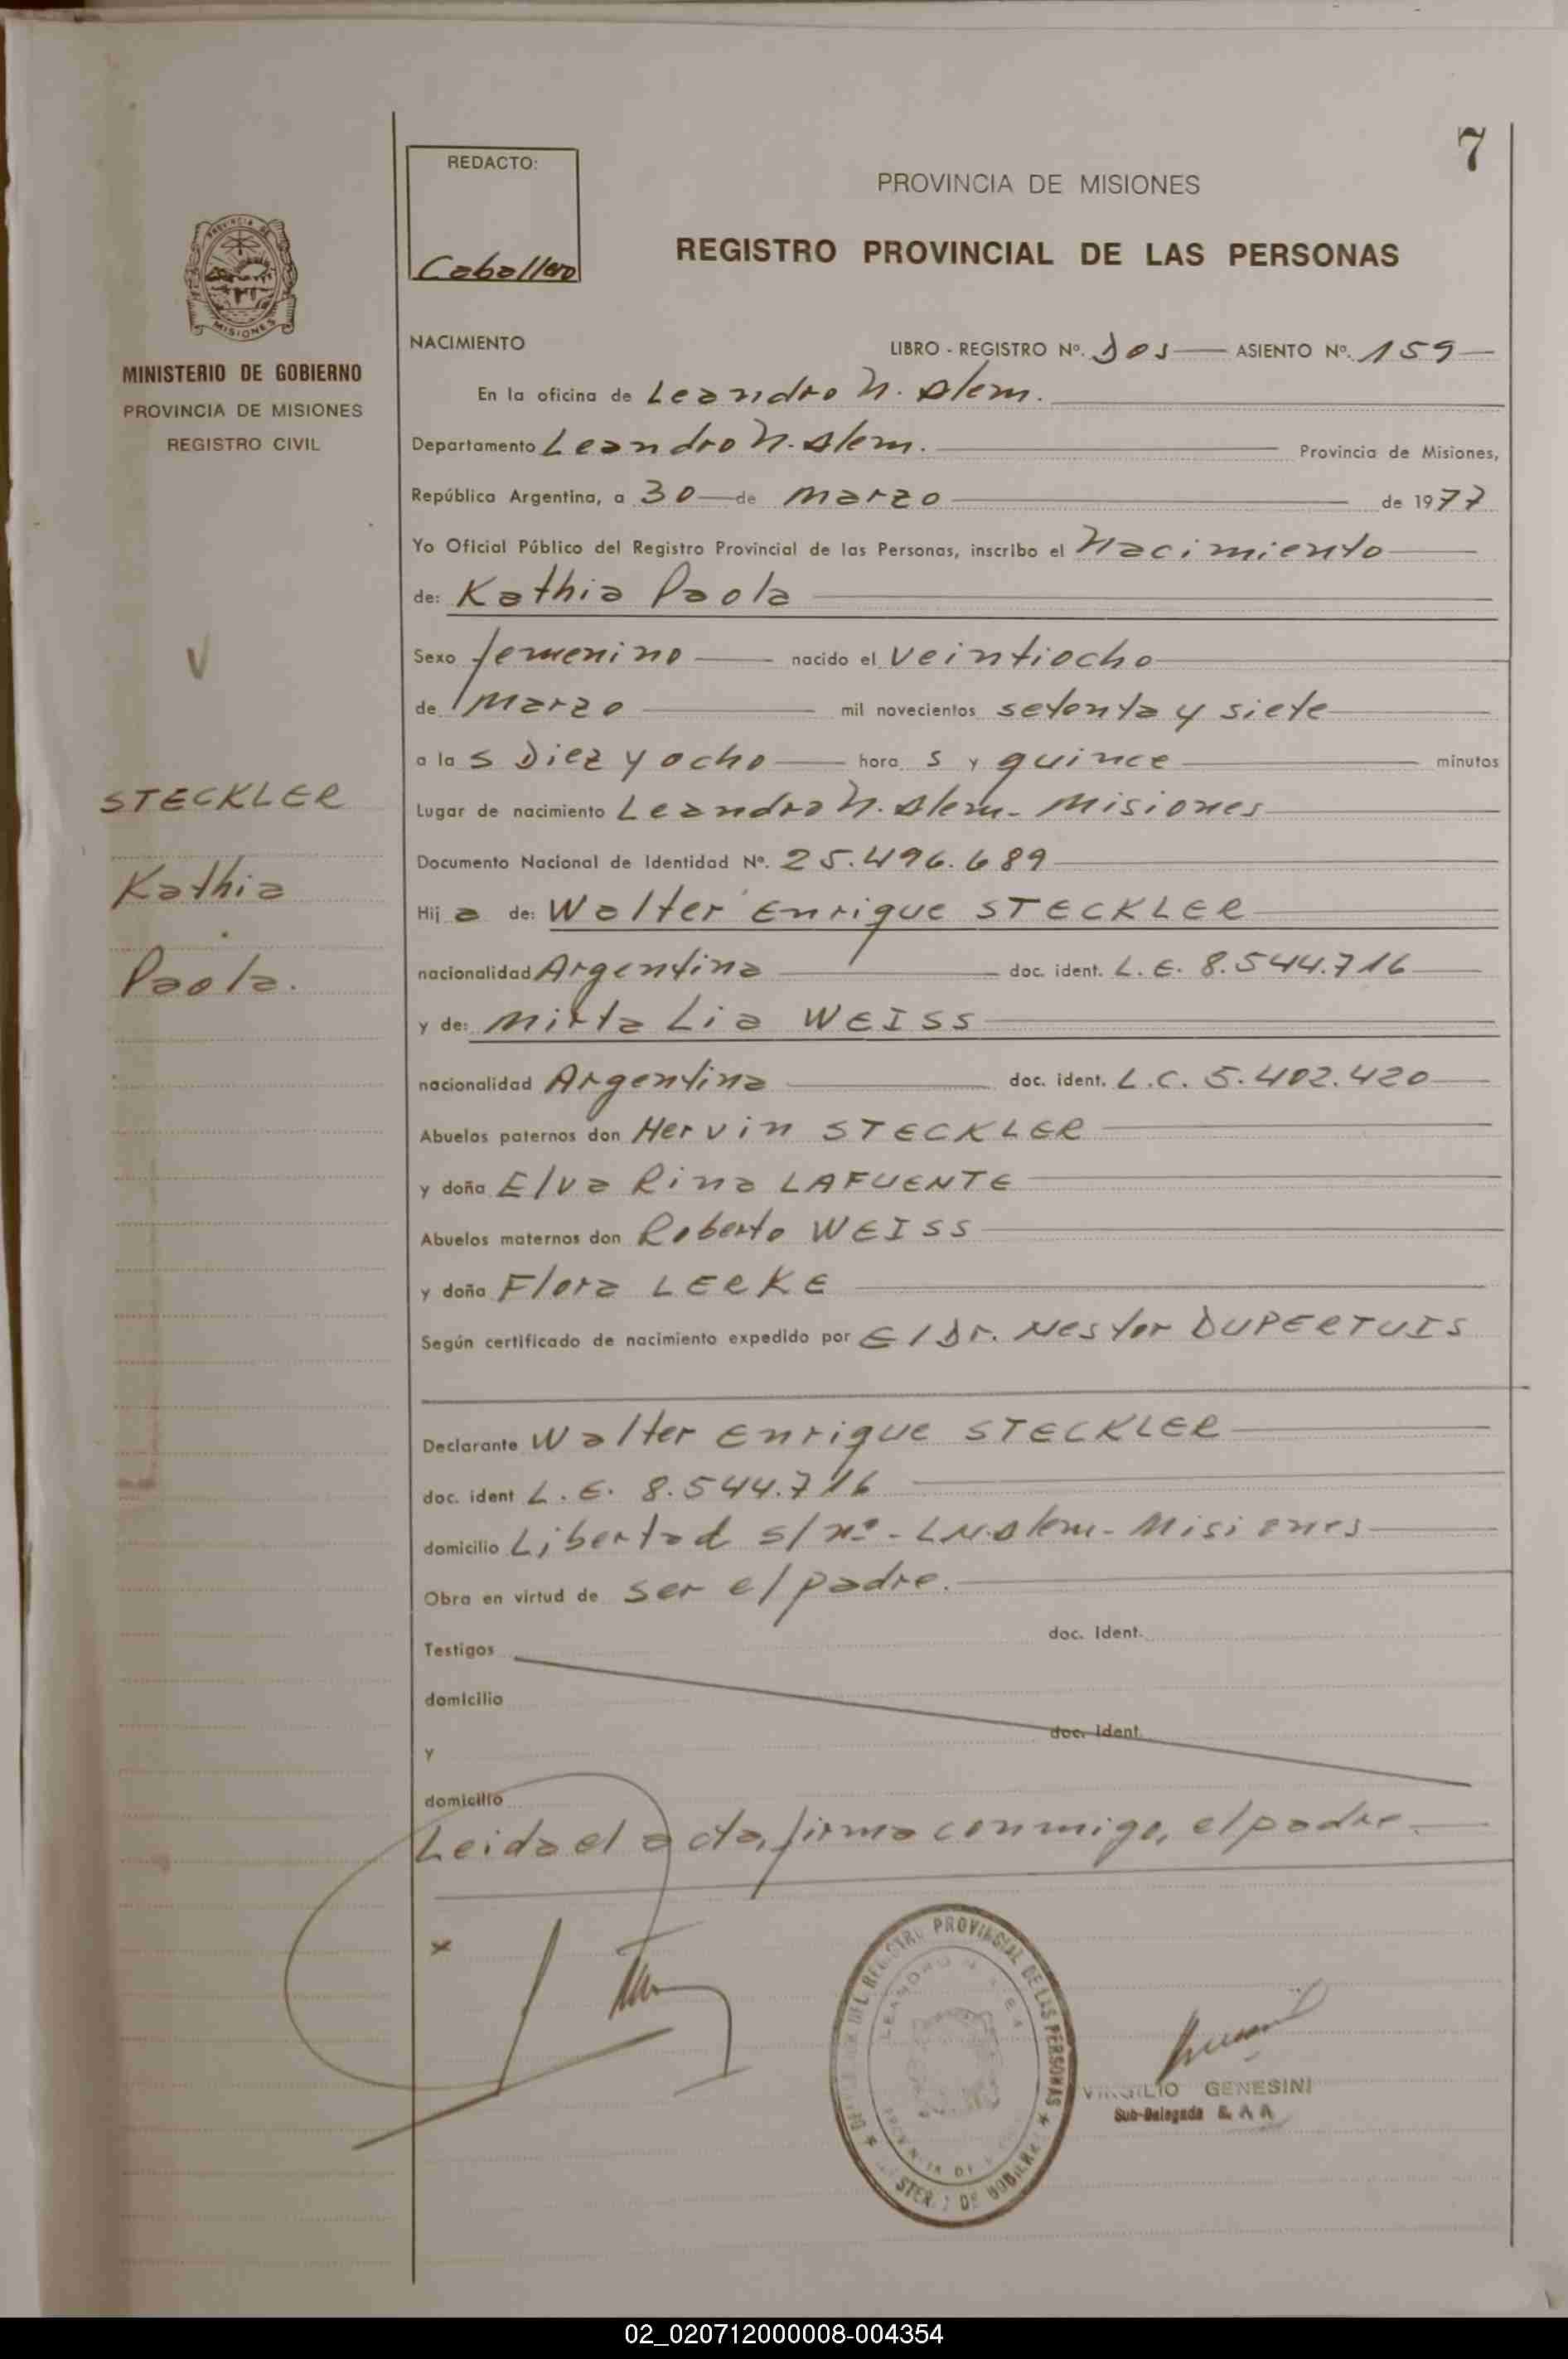 7
REDACTO:
Caballero
PROVINCIA DE MISIONES
REGISTRO PROVINCIAL DE LAS PERSONAS
MISIONES
MINISTERIO DE GOBIERNO
PROVINCIA DE MISIONES
REGISTRO CIVIL
NACIMIENTO
LIBRO - REGISTRO Nº. Dos ASIENTO Nº. 159
En la oficina de Leandro N. Alem.
Departamento Leandro N. Alem. Provincia de Misiones,
República Argentina, a 30 de Marzo de 1977
Yo Oficial Público del Registro Provincial de las Personas, inscribo el Nacimiento
de: Kathia Paola
Sexo femenino nacido el veintiocho
de Marzo mil novecientos setenta y siete
a la s Diez y ocho hora s y quince minutos
Lugar de nacimiento Leandro N. Alem - Misiones
Documento Nacional de Identidad Nº. 25.496.689
Hij a de: Walter Enrique STECKLER
nacionalidad Argentina doc. ident. L. E. 8.544.716
y de: Mirta Lia WEISS
nacionalidad Argentina doc. ident. L.C. 5.402.420
Abuelos paternos don Hervin STECKLER
y doña Elva Rina LAFUENTE
Abuelos maternos don Roberto WEISS
y doña Flora LERKE
Según certificado de nacimiento expedido por El Dr. Nestor DUPERTUIS
Declarante Walter Enrique STECKLER
doc. ident L. E. 8.544.716
domicilio Libertad s/nº - L.N.Alem - Misiones
Obra en virtud de ser el padre.
Testigos doc. Ident.
domicilio
y doc. Ident.
domicilio
Leida el acta, firma conmigo, el padre.
STECKLER
Kathia
Paola.
PROVINCIAL DE LAS PERSONAS
VIRGILIO GENESINI
Sub-Delegado
02_020712000008-004354